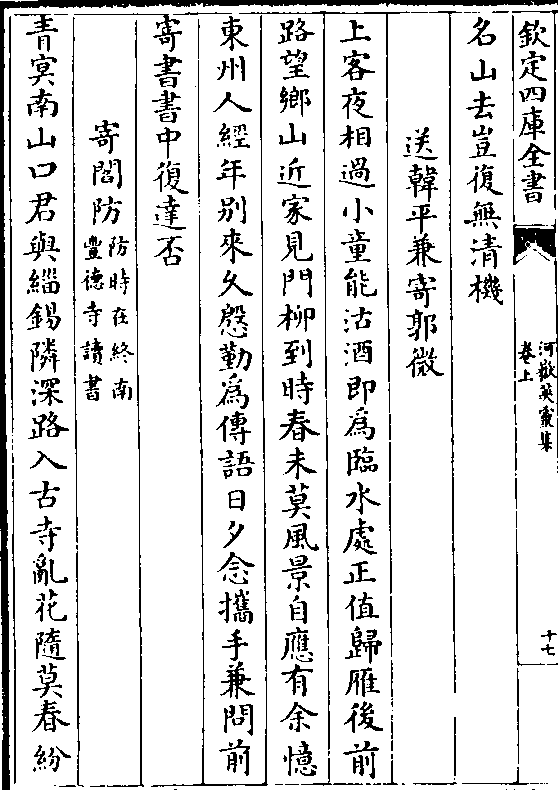 欽定四庫全書
河嶽英靈集
卷上
十七
名山去豈復無清機
送韓平兼寄郭微
上客夜相過小童能沽酒即為臨水處正值歸雁後前
路望鄉山近家見門柳到時春未莫風景自應有余憶
東州人經年別來久慇勤為傳語日夕念攜手兼問前
寄書書中復達否
寄閻防
防時在終南
豐德寺讀書
青㝠南山口君與緇錫隣深路入古寺亂花隨莫春紛